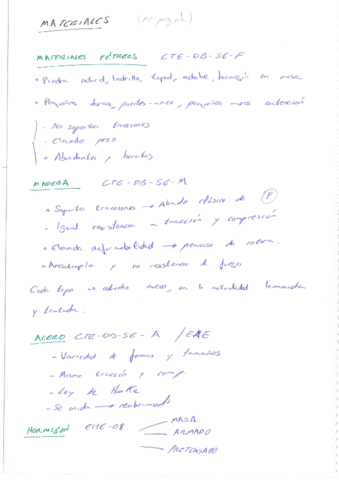 MATERIALES
MATERIALES PÉTREOS CTE-DB-SE-F
Piedra natural, ladrillo, tapial, adobe, hormigón en masa
Pequeños domos, puentes-arco, pequeños muros contención
- No soportan tracciones
- Elevado peso
- Abundantes y baratos
MADERA CTE-DB-SE-M
Soporta tracciones → Alarde clásico de F
Igual resistencia a tracción y compresión
Elevada deformabilidad → de rotura
Anisotropía y no resistencia al fuego
Cada tipo un estudio nuevo, en la actualidad laminada
y tratada.
ACERO CTE-DB-SE-A /EAE
- Variedad de formas y tamaños
- Misma tracción y comp.
- Ley de Hooke
- Se oxida → recubrimiento
HORMIGÓN EHE-08
MASA
ARMADO
PRETENSADO